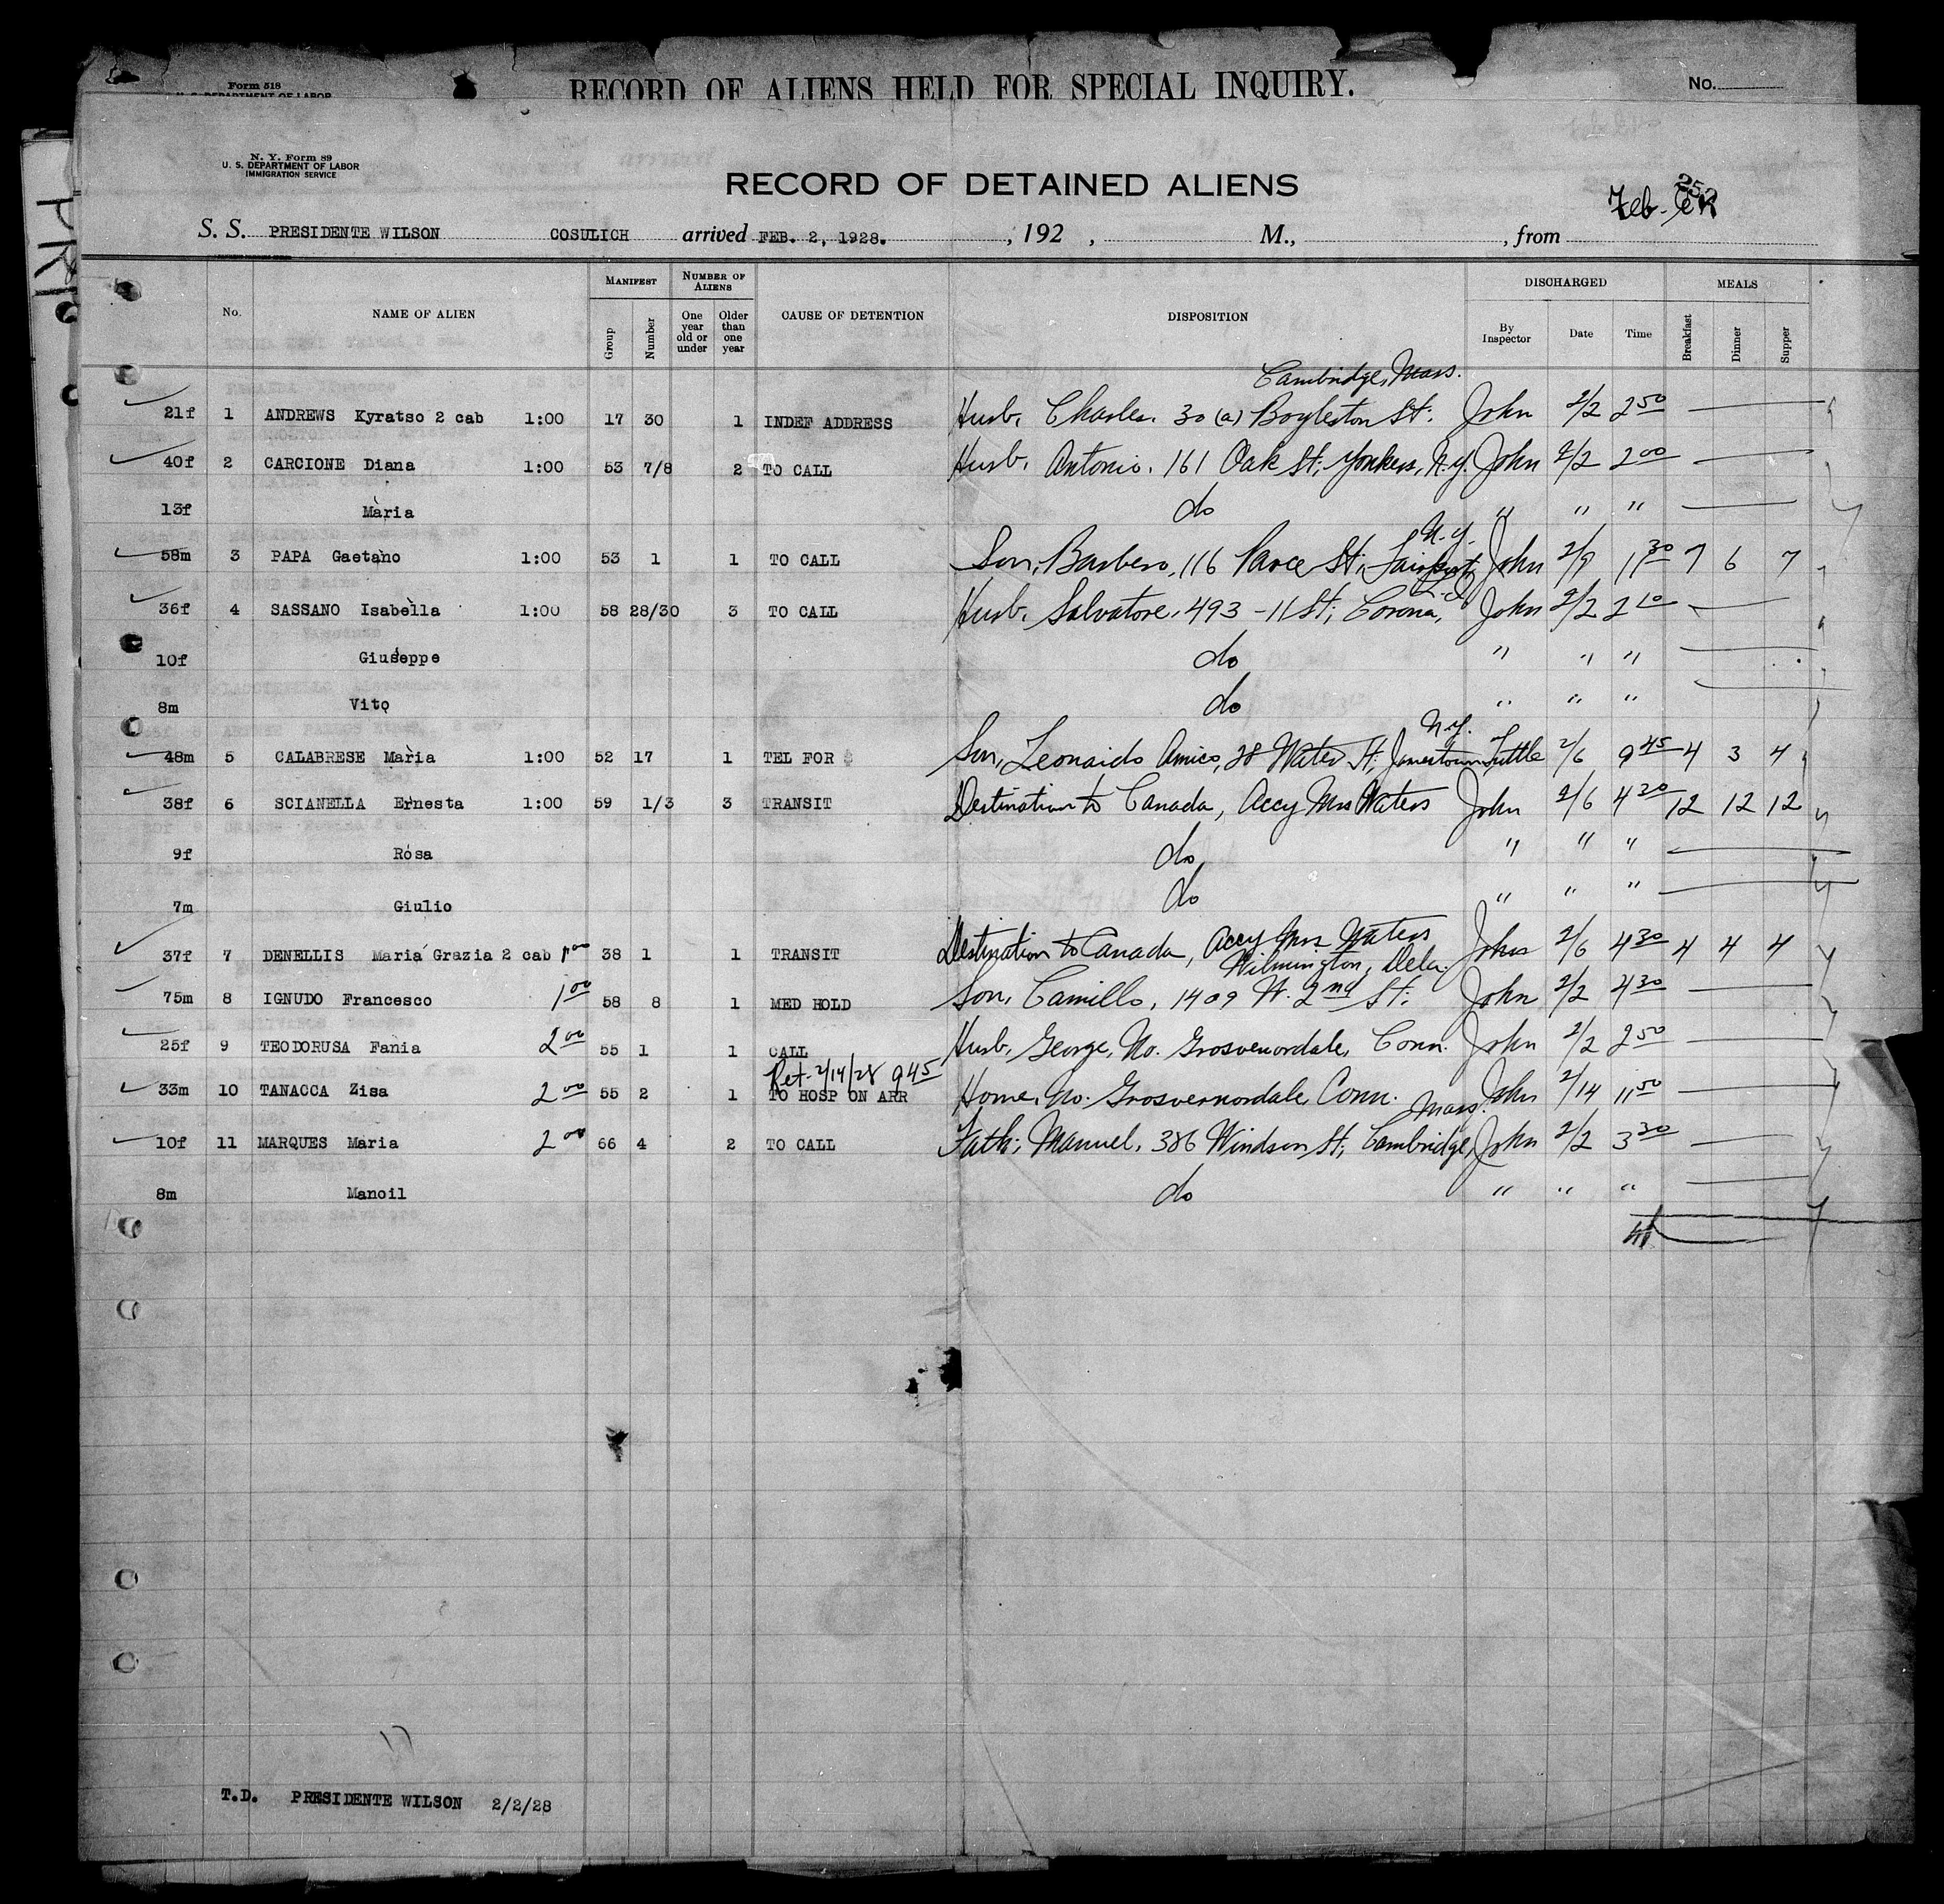 Form 518
U. S. DEPARTMENT OF LABOR
RECORD OF ALIENS HELD FOR SPECIAL INQUIRY.
No.
N. Y. Form 89
U. S. DEPARTMENT OF LABOR
IMMIGRATION SERVICE
RECORD OF DETAINED ALIENS
Feb.
S. S. PRESIDENTE WILSON COSULICH arrived FEB. 2, 1928. , 192 , M., , from
No. NAME OF ALIEN MANIFEST Group Number NUMBER OF ALIENS One year old or under Older than one year CAUSE OF DETENTION DISPOSITION DISCHARGED By Inspector Date Time MEALS Breakfast Dinner Supper
Cambridge, Mass.
21f 1 ANDREWS Kyratso 2 cab 1:00 17 30 1 INDEF ADDRESS Husb, Charles. 30 (a) Boyleston St; John 2/2 2 50
40f 2 CARCIONE Diana 1:00 53 7/8 2 TO CALL Husb, Antonio. 161 Oak St; Yonkers, N.Y. John 2/2 2 00
13f Maria do " " "
N.Y.
58m 3 PAPA Gaetano 1:00 53 1 1 TO CALL Son, Barbero, 116 Parce St; Fairport, John 2/9 1 30 7 6 7
L.I.
36f 4 SASSANO Isabella 1:00 58 28/30 3 TO CALL Husb. Salvatore, 493 - 11 St; Corona, John 2/2 2 10
10f Giuseppe do " " "
8m Vito do " " "
N.Y.
48m 5 CALABRESE Maria 1:00 52 17 1 TEL FOR $ Son, Leonardo Amico, 28 Water St, Jamestown Tuttle 2/6 9 45 4 3 4
38f 6 SCIANELLA Ernesta 1:00 59 1/3 3 TRANSIT Destination to Canada, Accy Mrs Waters John 2/6 4 30 12 12 12
9f Rosa do " " "
7m Giulio do " " "
37f 7 DENELLIS Maria Grazia 2 cab 1 00 38 1 1 TRANSIT Destination to Canada, Accy Mrs Waters John 2/6 4 30 4 4 4
Wilmington, Dela.
75m 8 IGNUDO Francesco 1 00 58 8 1 MED HOLD Son, Camillo, 1409 W. 2nd St; John 2/2 4 30
25f 9 TEODORUSA Fania 2 00 55 1 1 CALL Husb, George, No. Grosvenordale, Conn. John 2/2 2 50
Ret. 2/14/28 9 45
33m 10 TANACCA Zisa 2 00 55 2 1 TO HOSP ON ARR Home, No. Grosvernordale, Conn. John 2/14 11 50
Mass.
10f 11 MARQUES Maria 2 00 66 4 2 TO CALL Fath; Manuel, 386 Windson St; Cambridge, John 2/2 3 30
8m Manoil do " " "
T.D. PRESIDENTE WILSON 2/2/28